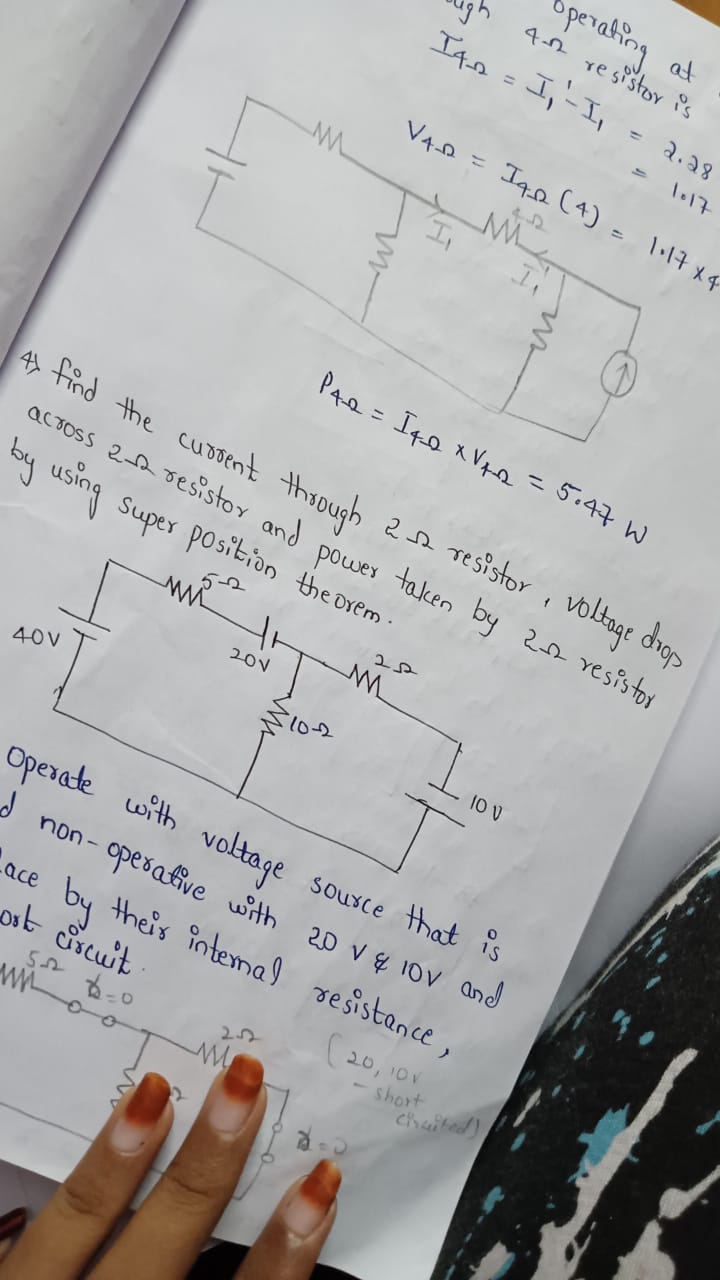 operating at
ugh 4Ω resistor is
I4Ω = I1' - I1 = 2.28
= 1.17
V4Ω = I4Ω (4) = 1.17 x 4
4Ω
I1
I1'
P4Ω = I4Ω x V4Ω = 5.47 W
4) find the current through 2Ω resistor, voltage drop
across 2Ω resistor and power taken by 2Ω resistor
by using super position theorem.
5Ω
40V
20V
2Ω
10Ω
10V
Operate with voltage source that is
d non-operative with 20 V & 10V and
lace by their internal resistance,
ort circuit.
5Ω
=0
2Ω
(20, 10V
- short
circuited)
=0